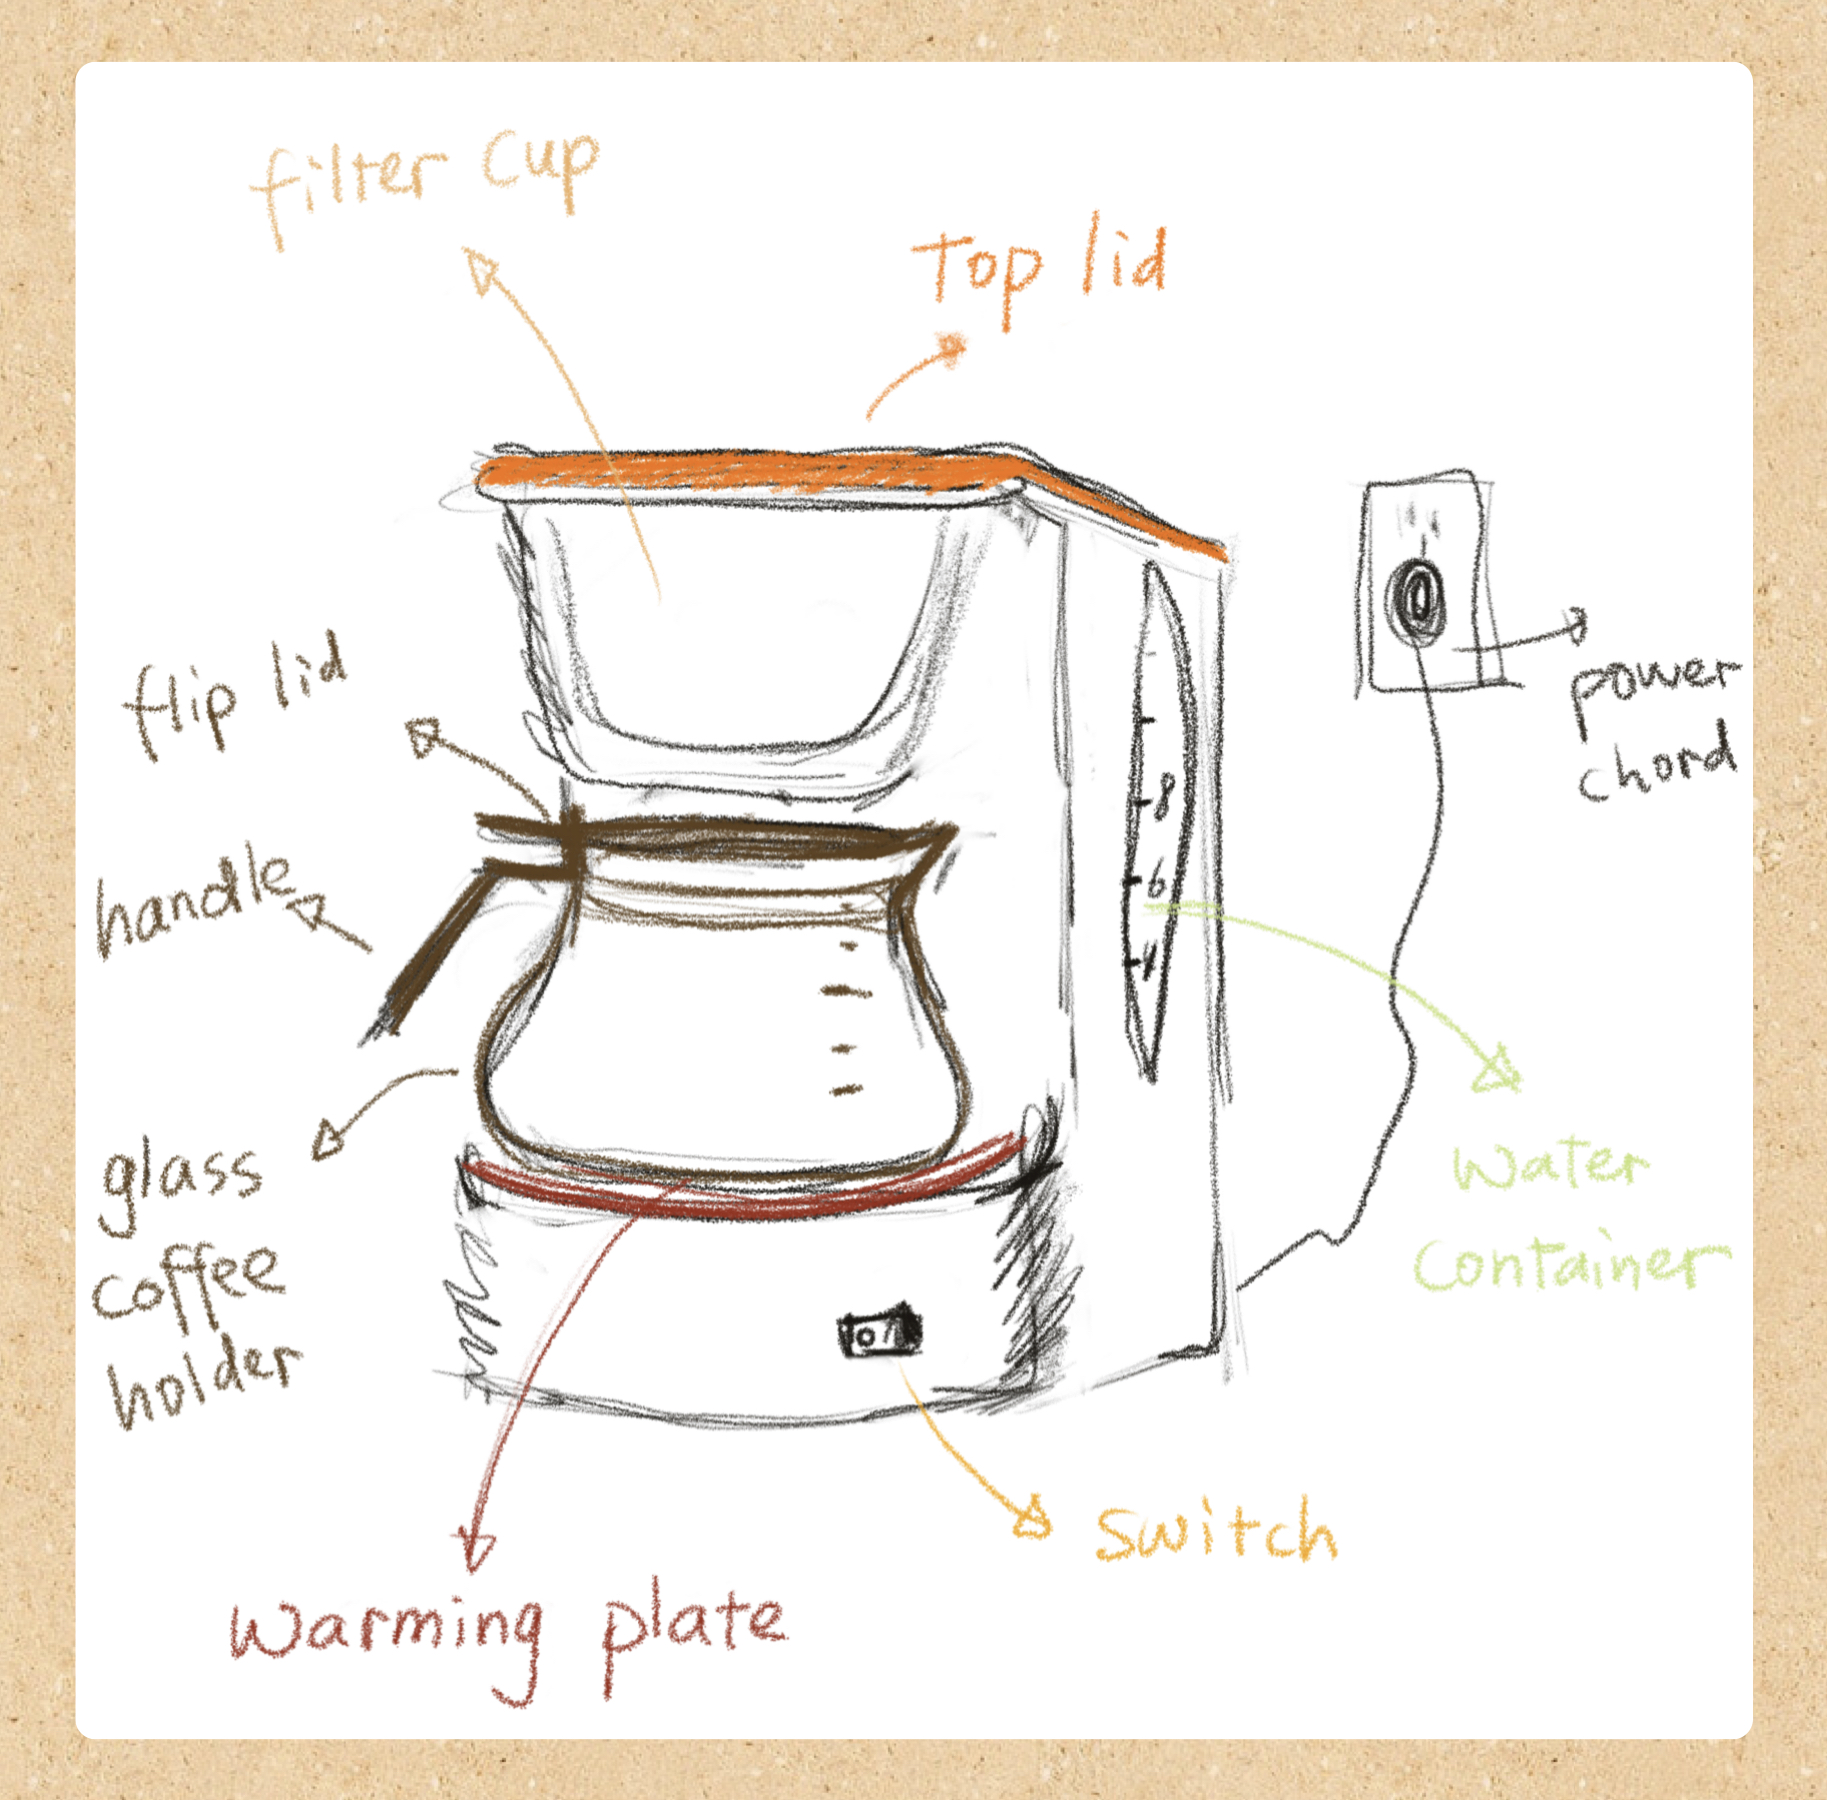 filter cup
Top lid
flip lid
power
chord
handle
8
6
4
glass
coffee
holder
water
container
switch
warming plate